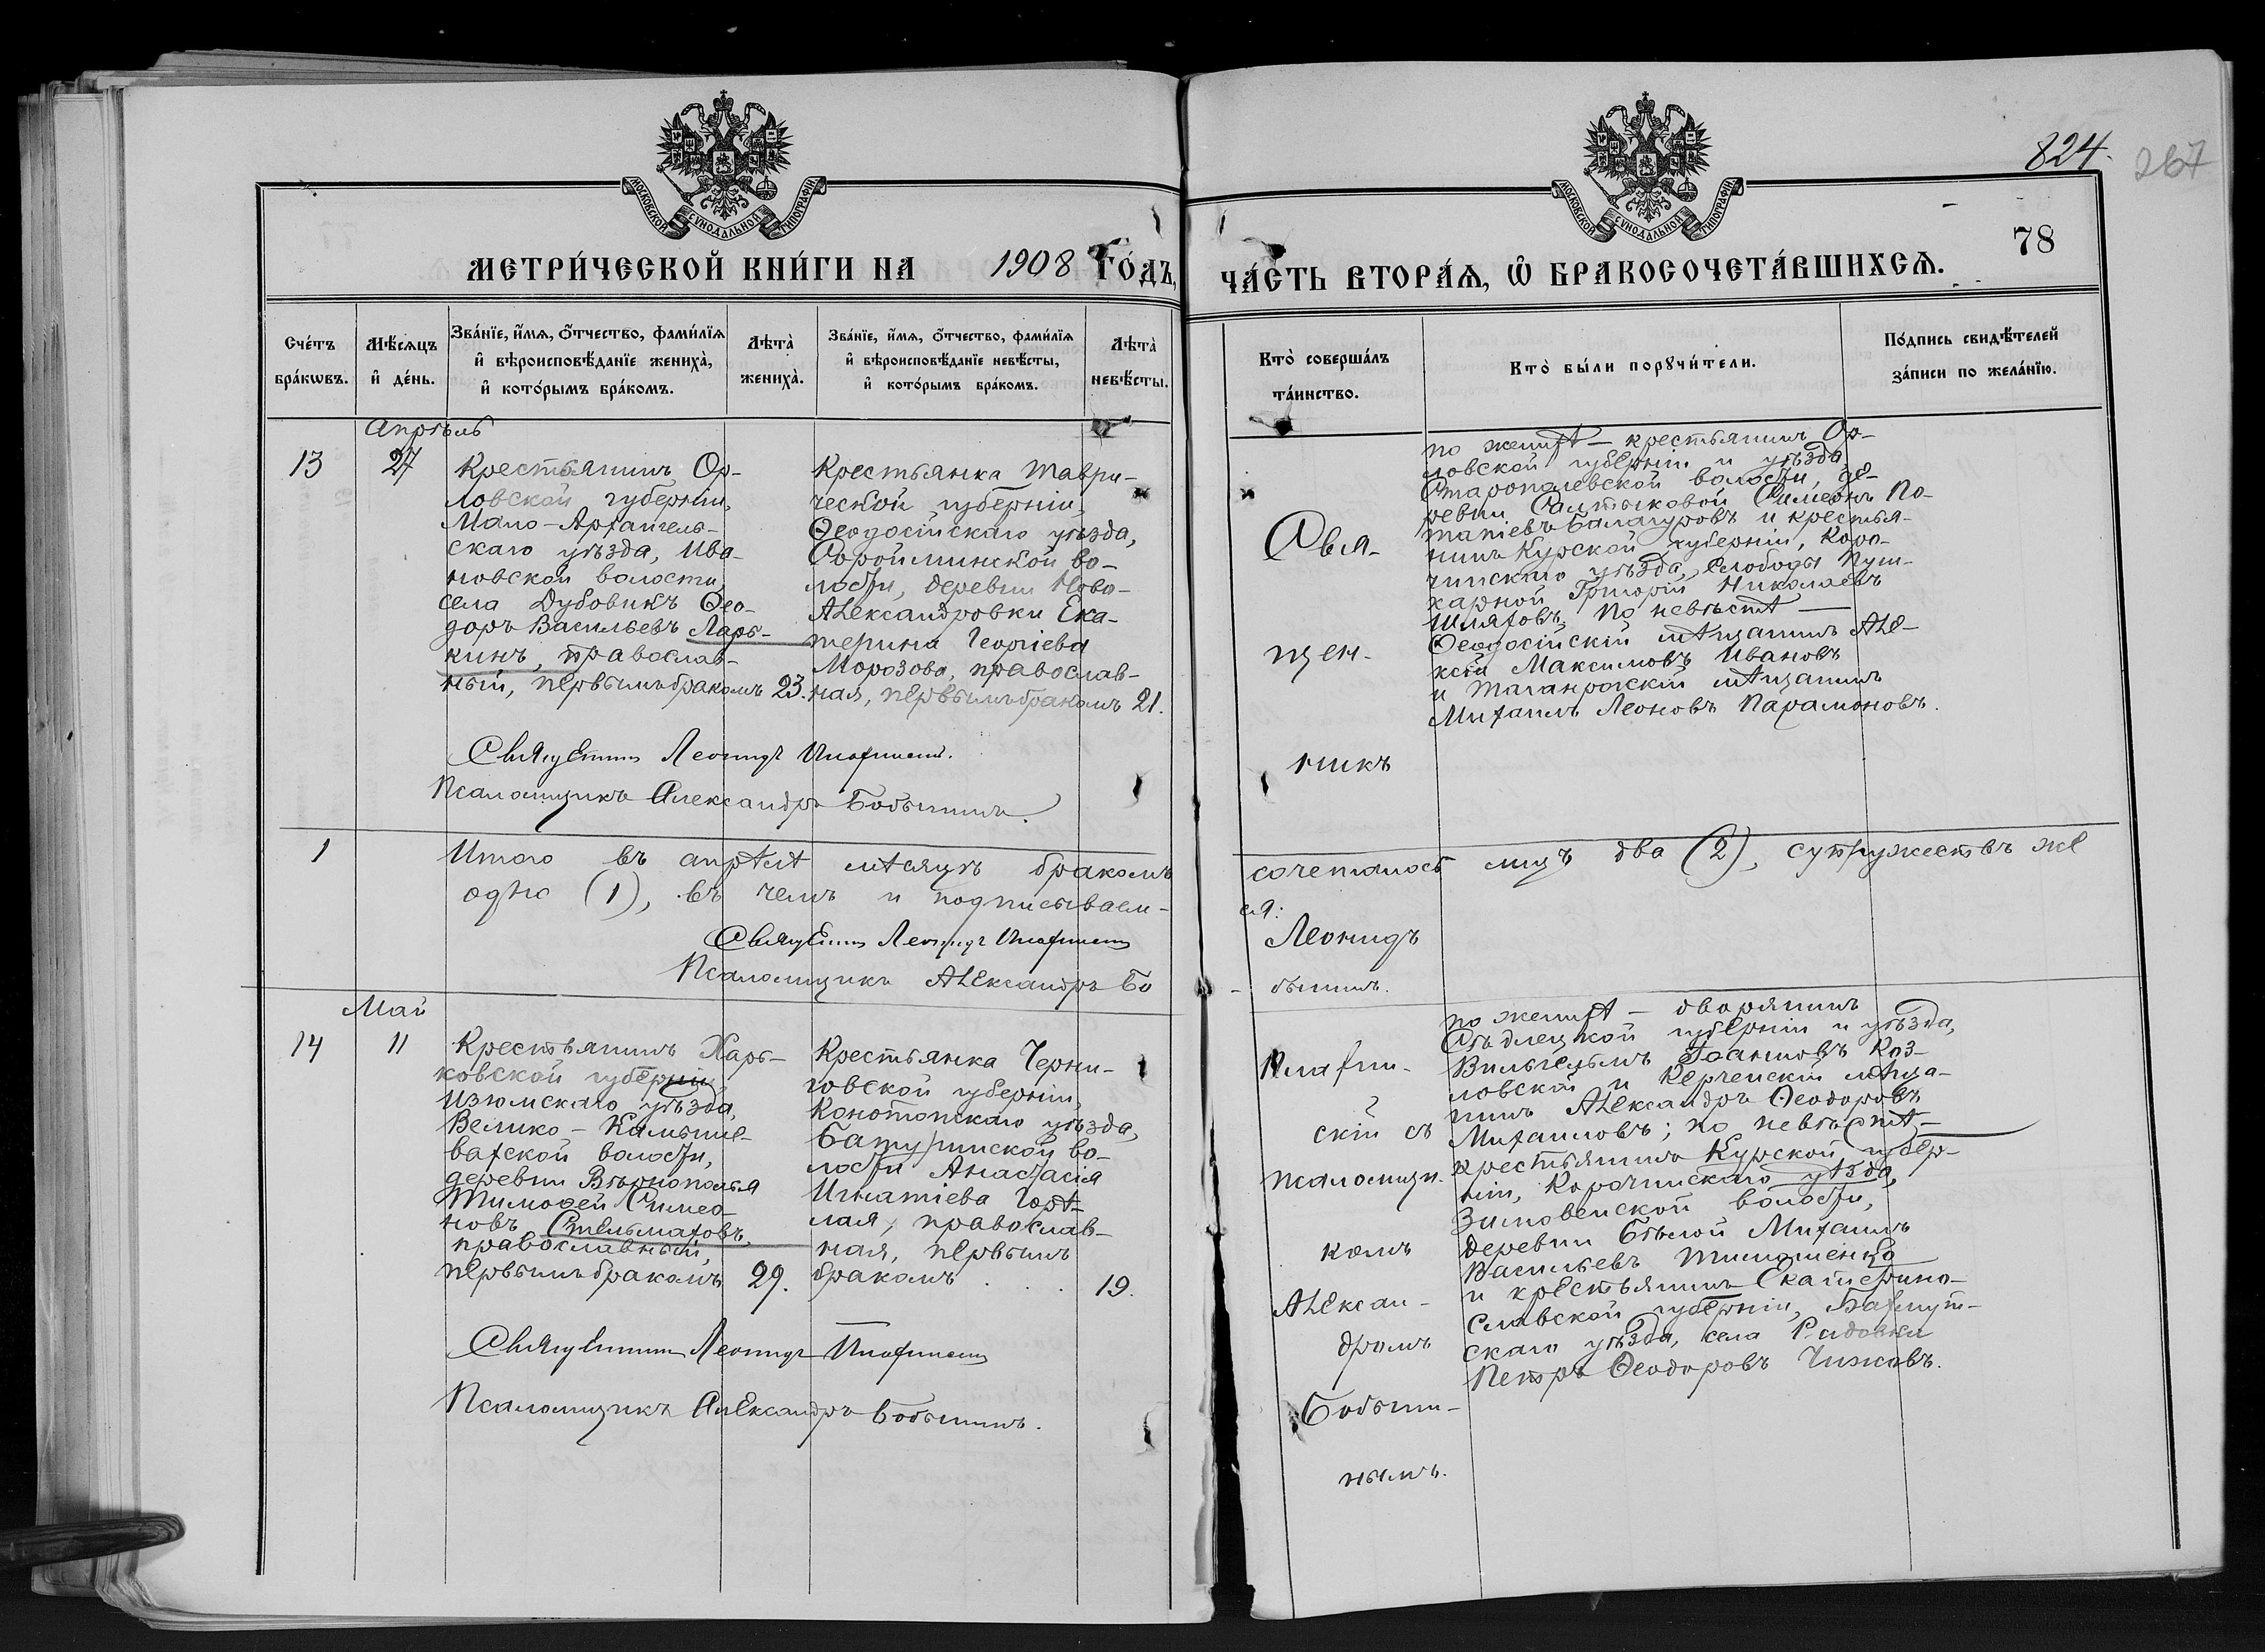 824.
267
78
МОСКОВСКОЙ СѴНОДАЛЬНОЙ ТИПОГРАФІИ
МОСКОВСКОЙ СѴНОДАЛЬНОЙ ТИПОГРАФІИ
МЕТРИ́ЧЕСКОЙ КНИ́ГИ НА 1908 ГО́ДЪ,
ЧА́СТЬ ВТОРА́Я, Ѡ БРАКОСОЧЕТА́ВШИХСЯ.
Сче́тъ бра́кѡвъ.
Мѣ́сяцъ и де́нь.
Зва́нїе, и́мя, о́тчество, фами́лїя
и вѣроисповѣ́данїе жениха̀,
и кото́рымъ бра́комъ.
Лѣта̀ жениха̀.
Зва́нїе, и́мя, о́тчество, фами́лїя
и вѣроисповѣ́данїе невѣ́сты,
и кото́рымъ бра́комъ.
Лѣта̀ невѣ́сты.
Кто̀ соверша́лъ
та́инство.
Кто̀ бы́ли порꙋчи́тели.
По́дпись свидѣ́телей
за́писи по жела́нїю.
Апрѣль
13
27
Крестьянинъ Ор-
ловской губерніи,
Мало-Архангель-
скаго уѣзда, Ива-
новской волости
села Дубовикъ Ѳео-
доръ Васильевъ Ларь-
кинъ, православ-
ный, первымъ бракомъ
23.
Крестьянка Таври-
ческой губерніи,
Ѳеодосійскаго уѣзда,
во-
лости, деревни Ново-
Александровки Ека-
терина Георгіева
Морозова, православ-
ная, первымъ бракомъ
21.
Свя-
щен-
никъ
по женихѣ — крестьянинъ Ор-
ловской губерніи и уѣзда
волости, де-
ревни Салтыковой Симеонъ По-
тапіевъ Балагуровъ и крестья-
нинъ Курской губерніи, Коро-
чинскаго уѣзда, слободы Пуш-
карной Григорій Николаевъ
Шляховъ; по невѣстѣ —
Ѳеодосійскій мѣщанинъ Але-
ксій Максимовъ Ивановъ
и Таганрогскій мѣщанинъ
Михаилъ Леоновъ Парамоновъ.
Священникъ Леонидъ
Псаломщикъ Александръ Бобынинъ.
1
Итого въ апрѣлѣ мѣсяцѣ бракомъ
сочеталось лицъ два (2), супружествъ же
одно (1), въ чемъ и подписываем-
ся:
Священникъ Леонидъ
Леонидъ
Псаломщикъ Александръ Бо
бынинъ.
Май
14
11
Крестьянинъ Харь-
ковской губерніи,
Изюмскаго уѣзда,
Велико-Камыше-
вахской волости,
деревни Вѣрнополья
Тимоѳей Симео-
новъ Стельмаховъ,
православный,
первымъ бракомъ
29.
Крестьянка Черни-
говской губерніи,
Конотопскаго уѣзда,
Батуринской во-
лости Анастасія
Игнатіева Горѣ-
лая, православ-
ная, первымъ
бракомъ
19.
скій съ
псаломщи-
комъ
Алексан-
дромъ
Бобыни-
нымъ.
по женихѣ — дворянинъ
Сѣдлецкой губерніи и уѣзда,
Вильгельмъ Іоанновъ Коз-
ловскій и Керченскій мѣща-
нинъ Александръ Ѳеодоровъ
Михаиловъ; по невѣстѣ —
крестьянинъ Курской губер-
ніи, Корочинскаго уѣзда,
Зимовенской волости,
деревни Бѣлой Михаилъ
Васильевъ Тимошенко
и крестьянинъ Екатерино-
славской губерніи, Бахмут-
скаго уѣзда, села
Петръ Ѳеодоровъ Чижовъ.
Священникъ Леонидъ
Псаломщикъ Александръ Бобынинъ.